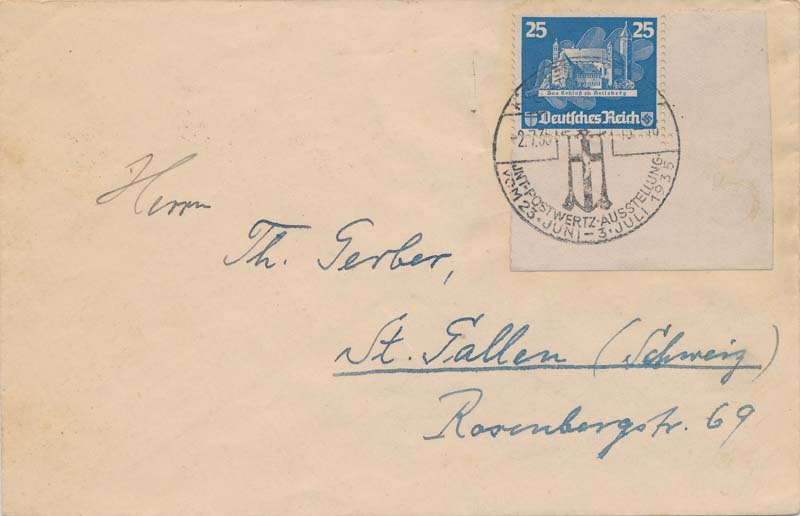 25 25
Das Schloß zu Heilsberg
Deutsches Reich
2.7.35
JNT·POSTWERTZ·AUSSTELLUNG·
VOM 23·JUNI–3·JULI 1935
Herrn
Th. Gerber,
St. Gallen (Schweiz)
Rosenbergstr. 69